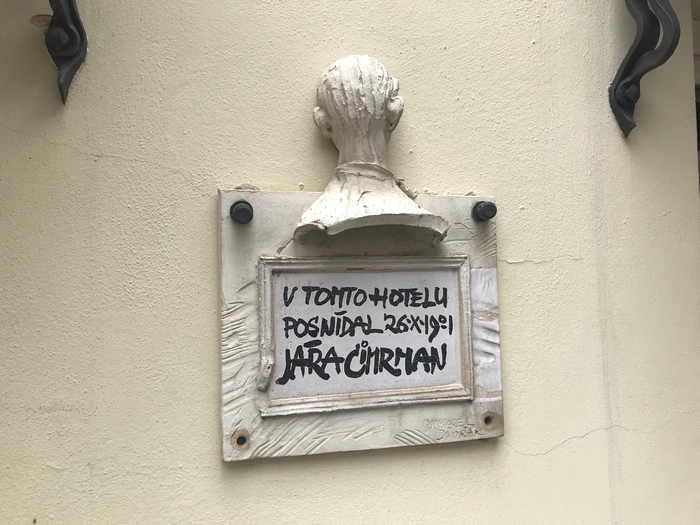 V TOMTO HOTELU
POSNÍDAL 26·X·1901
JÁRA CIMRMAN